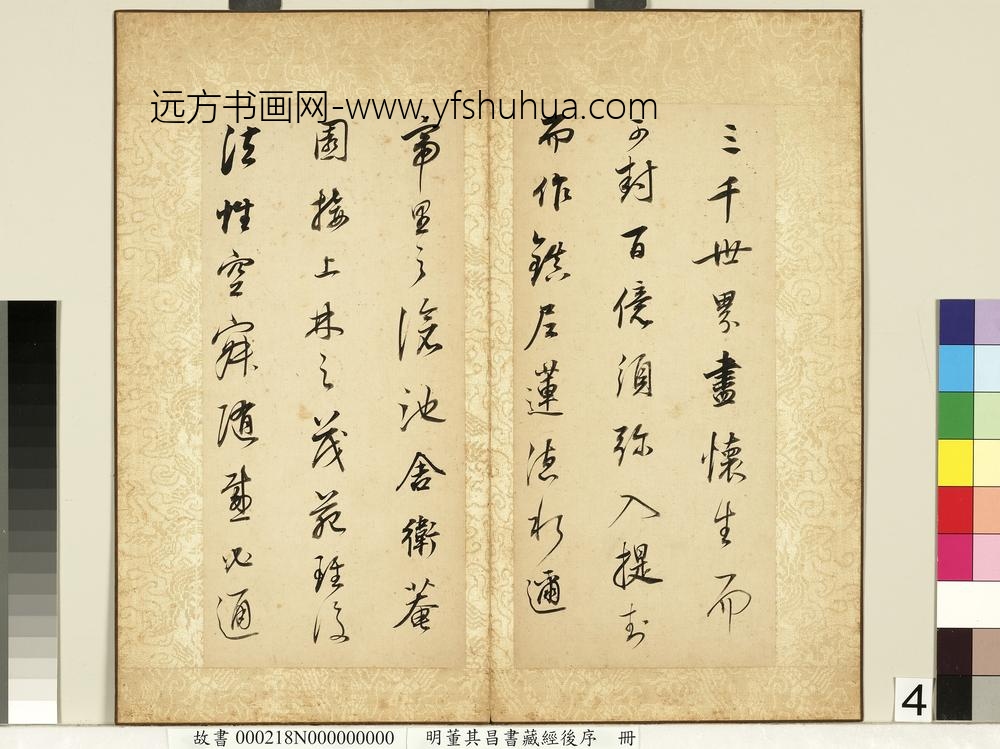 远方书画网-www.yfshuhua.com
三千世界盡懷生而
可封百億須弥入提封
而作鎮尼蓮德水邇
帝里之滄池舍衛菴
園接上林之茂苑雖復
法性空寂隨感必通
4
故書 000218N000000000 明董其昌書藏經後序 冊